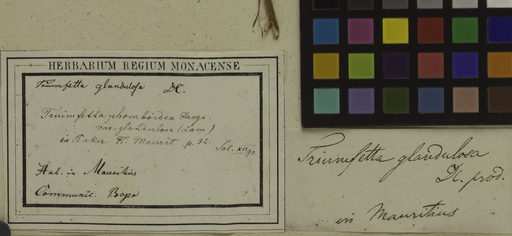 HERBARIUM REGIUM MONACENSE
Triumfetta glandulosa DC.
Triumfetta rhomboidea Jacqu.
var. glandulosa (Lam)
in Baker Fl. Maurit p. 32.
Sol. XII 90
Hab. in Mauritius
Communic. Bojer
Triumfetta glandulosa
DC. prod.
in Mauritius